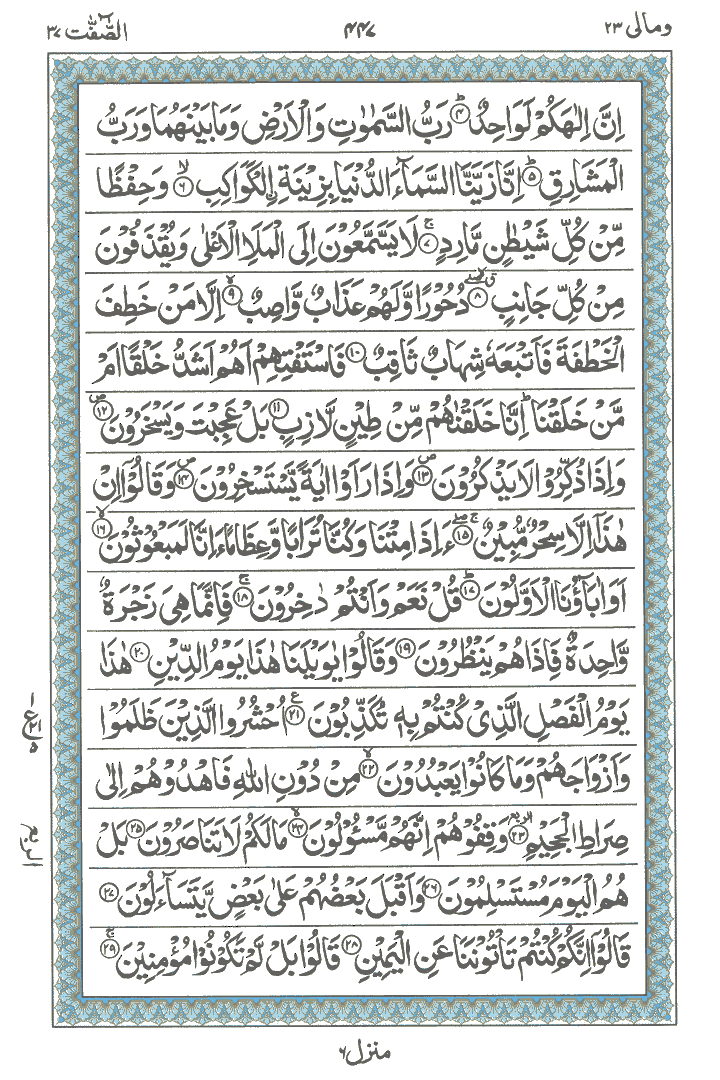 ومالی ۲۳
۴۴۷
الصّٰٓفّٰت ۳۷
اِنَّ اِلٰهَكُمْ لَوَاحِدٌ ؕ﴿۴﴾ رَبُّ السَّمٰوٰتِ وَالْاَرْضِ وَمَا بَيْنَهُمَا وَرَبُّ
الْمَشَارِقِ ؕ﴿۵﴾ اِنَّا زَيَّنَّا السَّمَآءَ الدُّنْيَا بِزِيْنَةِ ۨالْكَوَاكِبِ ۙ﴿۶﴾ وَحِفْظًا
مِّنْ كُلِّ شَيْطٰنٍ مَّارِدٍ ۚ﴿۷﴾ لَا يَسَّمَّعُوْنَ اِلَى الْمَلَاِ الْاَعْلٰى وَيُقْذَفُوْنَ
مِنْ كُلِّ جَانِبٍ ۖق﴿۸﴾ دُحُوْرًا وَّلَهُمْ عَذَابٌ وَّاصِبٌ ۙ﴿۹﴾ اِلَّا مَنْ خَطِفَ
الْخَطْفَةَ فَاَتْبَعَهٗ شِهَابٌ ثَاقِبٌ ﴿۱۰﴾ فَاسْتَفْتِهِمْ اَهُمْ اَشَدُّ خَلْقًا اَمْ
مَّنْ خَلَقْنَا ؕ اِنَّا خَلَقْنٰهُمْ مِّنْ طِيْنٍ لَّازِبٍ ﴿۱۱﴾ بَلْ عَجِبْتَ وَيَسْخَرُوْنَ ۪﴿۱۲﴾
وَاِذَا ذُكِّرُوْا لَا يَذْكُرُوْنَ ۪﴿۱۳﴾ وَاِذَا رَاَوْا اٰيَةً يَّسْتَسْخِرُوْنَ ۪﴿۱۴﴾ وَقَالُوْۤا اِنْ
هٰذَاۤ اِلَّا سِحْرٌ مُّبِيْنٌ ۚۖ﴿۱۵﴾ ءَاِذَا مِتْنَا وَكُنَّا تُرَابًا وَّعِظَامًا ءَاِنَّا لَمَبْعُوْثُوْنَ ۙ﴿۱۶﴾
اَوَاٰبَآؤُنَا الْاَوَّلُوْنَ ؕ﴿۱۷﴾ قُلْ نَعَمْ وَاَنْتُمْ دٰخِرُوْنَ ۚ﴿۱۸﴾ فَاِنَّمَا هِيَ زَجْرَةٌ
وَّاحِدَةٌ فَاِذَا هُمْ يَنْظُرُوْنَ ﴿۱۹﴾ وَقَالُوْا يٰوَيْلَنَا هٰذَا يَوْمُ الدِّيْنِ ﴿۲۰﴾ هٰذَا
يَوْمُ الْفَصْلِ الَّذِيْ كُنْتُمْ بِهٖ تُكَذِّبُوْنَ ﴿۲۱﴾ ع اُحْشُرُوا الَّذِيْنَ ظَلَمُوْا
وَاَزْوَاجَهُمْ وَمَا كَانُوْا يَعْبُدُوْنَ ۙ﴿۲۲﴾ مِنْ دُوْنِ اللّٰهِ فَاهْدُوْهُمْ اِلٰى
صِرَاطِ الْجَحِيْمِ ﴿۲۳﴾ وَقِفُوْهُمْ اِنَّهُمْ مَّسْـُٔوْلُوْنَ ۙ﴿۲۴﴾ مَا لَكُمْ لَا تَنَاصَرُوْنَ ﴿۲۵﴾ بَلْ
هُمُ الْيَوْمَ مُسْتَسْلِمُوْنَ ﴿۲۶﴾ وَاَقْبَلَ بَعْضُهُمْ عَلٰى بَعْضٍ يَّتَسَآءَلُوْنَ ﴿۲۷﴾
قَالُوْۤا اِنَّكُمْ كُنْتُمْ تَاْتُوْنَنَا عَنِ الْيَمِيْنِ ﴿۲۸﴾ قَالُوْا بَلْ لَّمْ تَكُوْنُوْا مُؤْمِنِيْنَ ۚ﴿۲۹﴾
۱
ع ۲۱
۵
الربع
منزل ۶